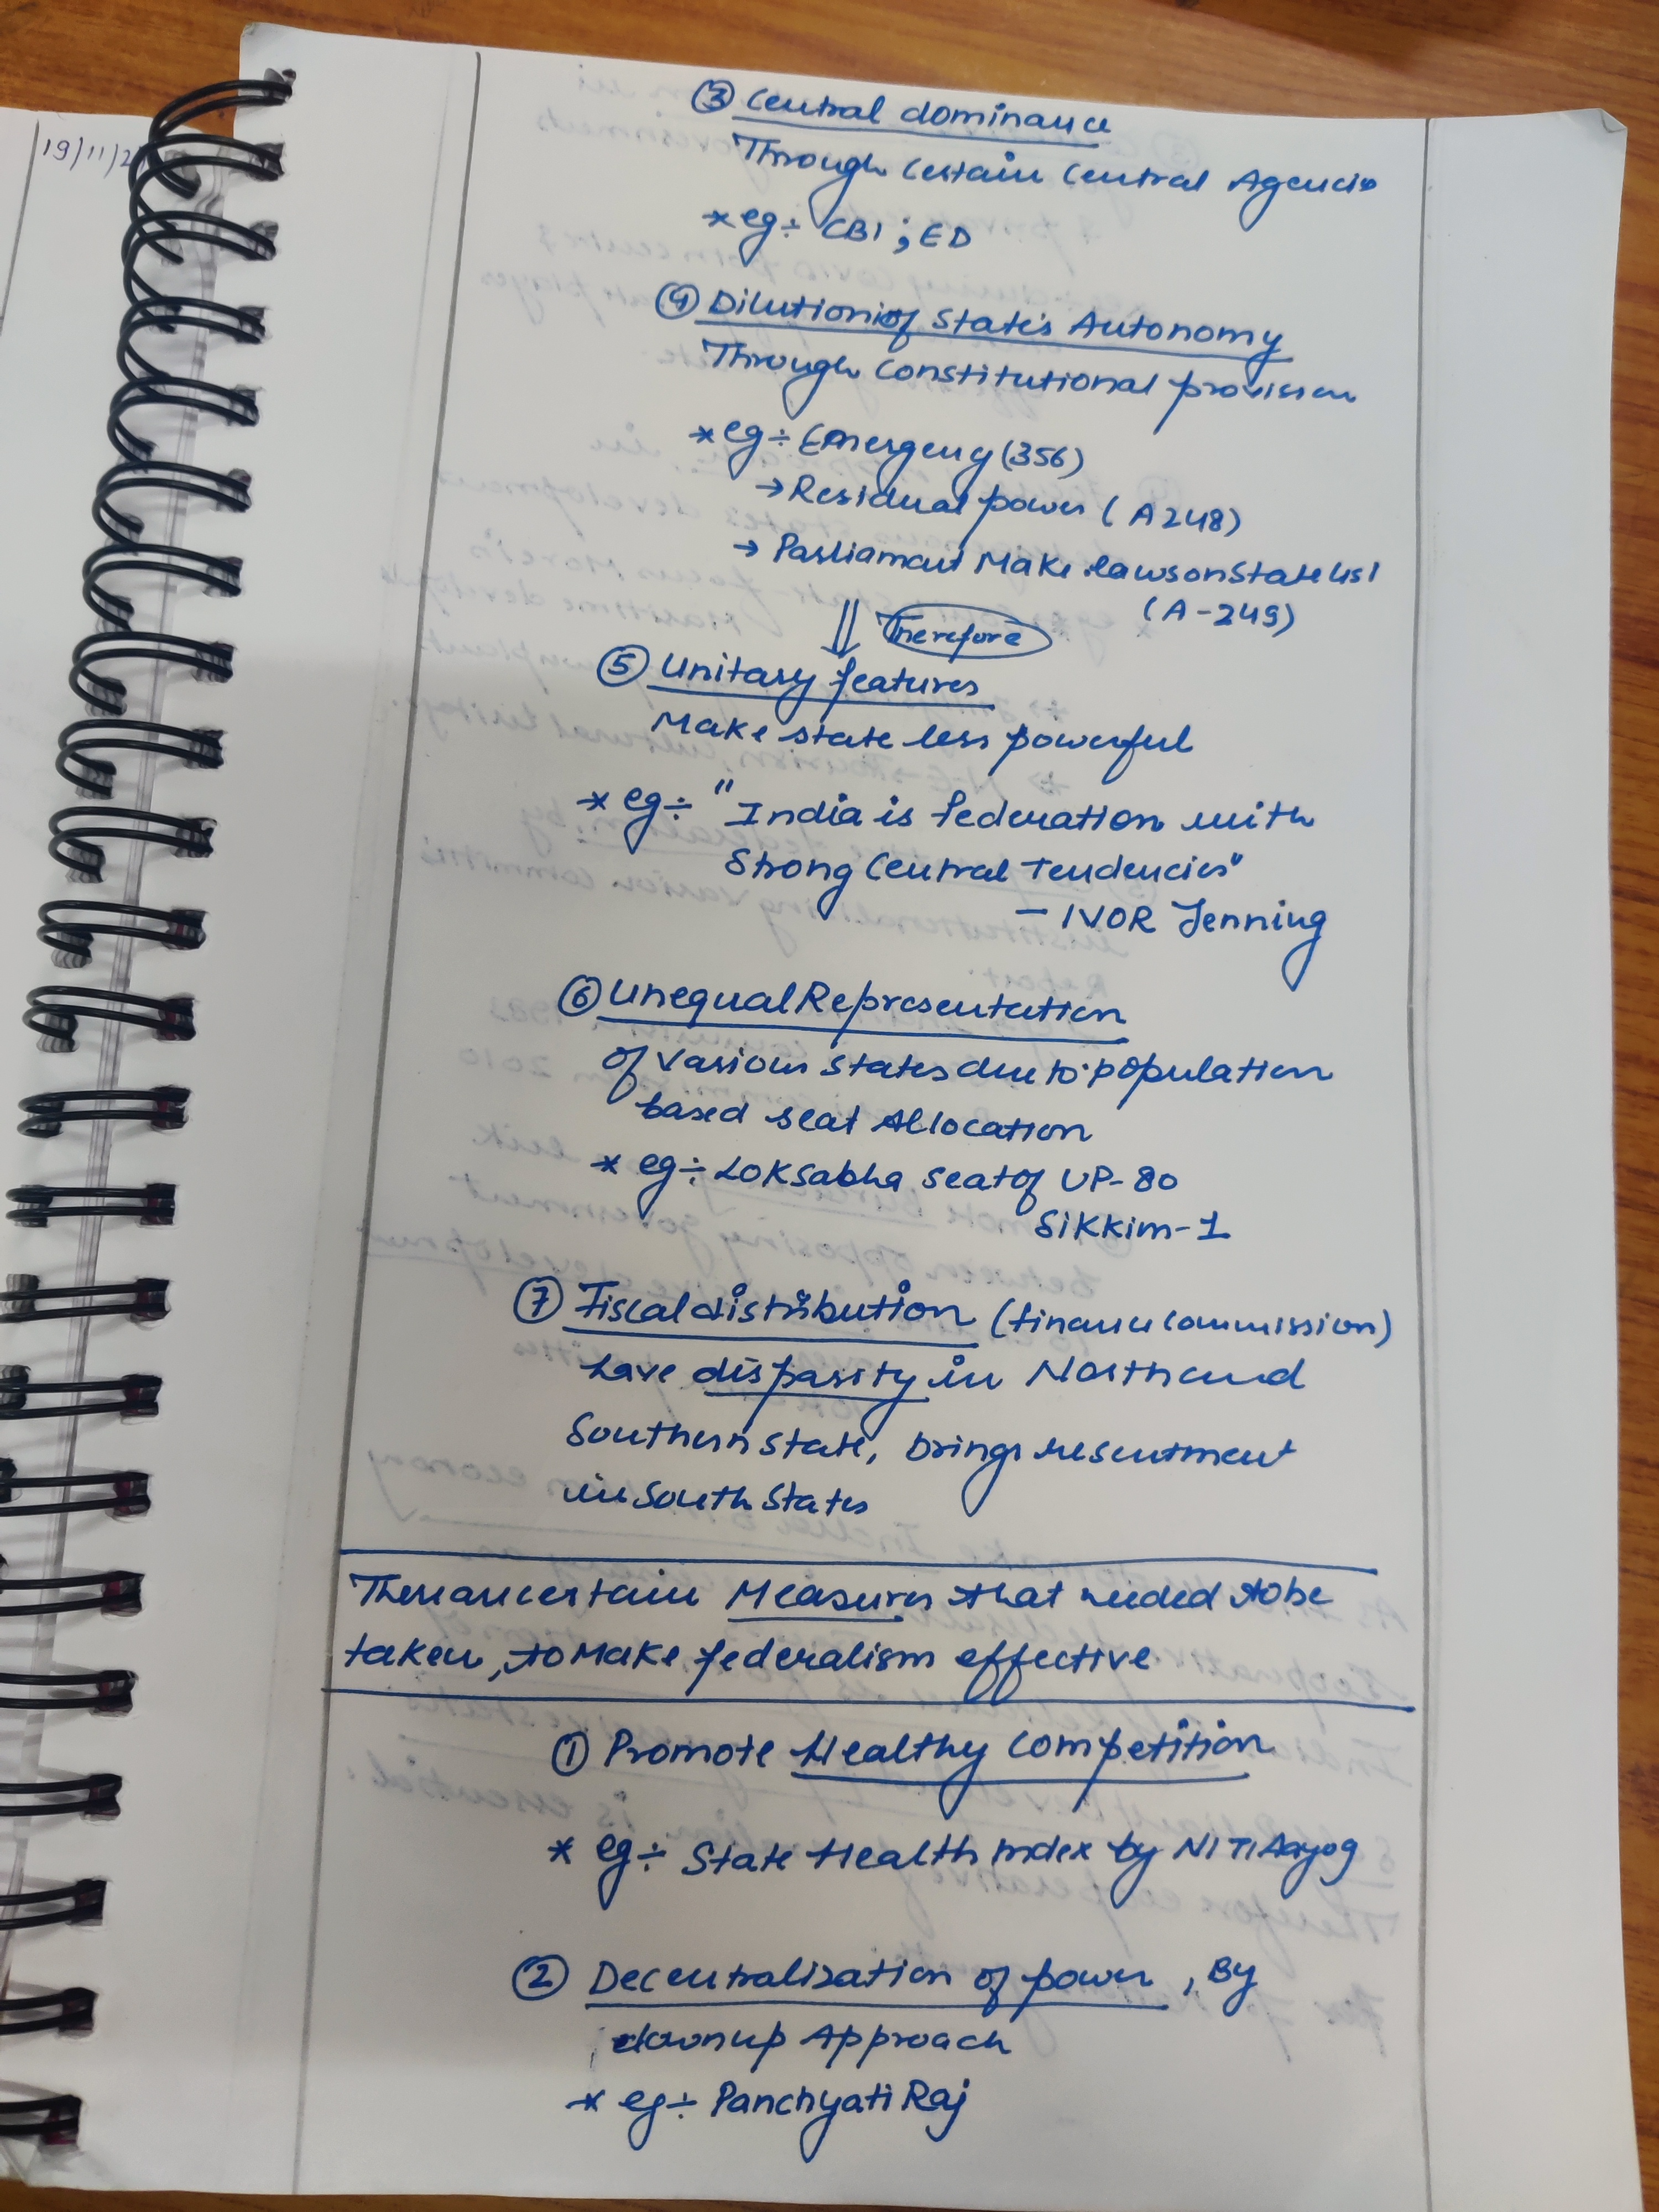 19/11/2
③ Central dominance
Through certain Central Agencies
* eg÷ CBI ; ED
④ Dilution of State's Autonomy
Through Constitutional provision
* eg÷ Emergency (356)
→ Residual power (A 248)
→ Parliament Make laws on State list
(A-249)
⇓ Therefore
⑤ Unitary features
Make state less powerful
* eg÷ "India is federation with
Strong Central Tendencies"
- IVOR Jenning
⑥ Unequal Representation
of various states due to population
based seat Allocation
* eg÷ Loksabha seat of UP-80
Sikkim-1
⑦ Fiscal distribution (finance commission)
have disparity in North and
Southern state, brings resentment
in South States
There are certain Measures that needed to be
taken, to Make federalism effective
① Promote Healthy Competition
* eg÷ State Health Index by NITI Aayog
② Decentralization of power, By
downup Approach
* eg÷ Panchyati Raj